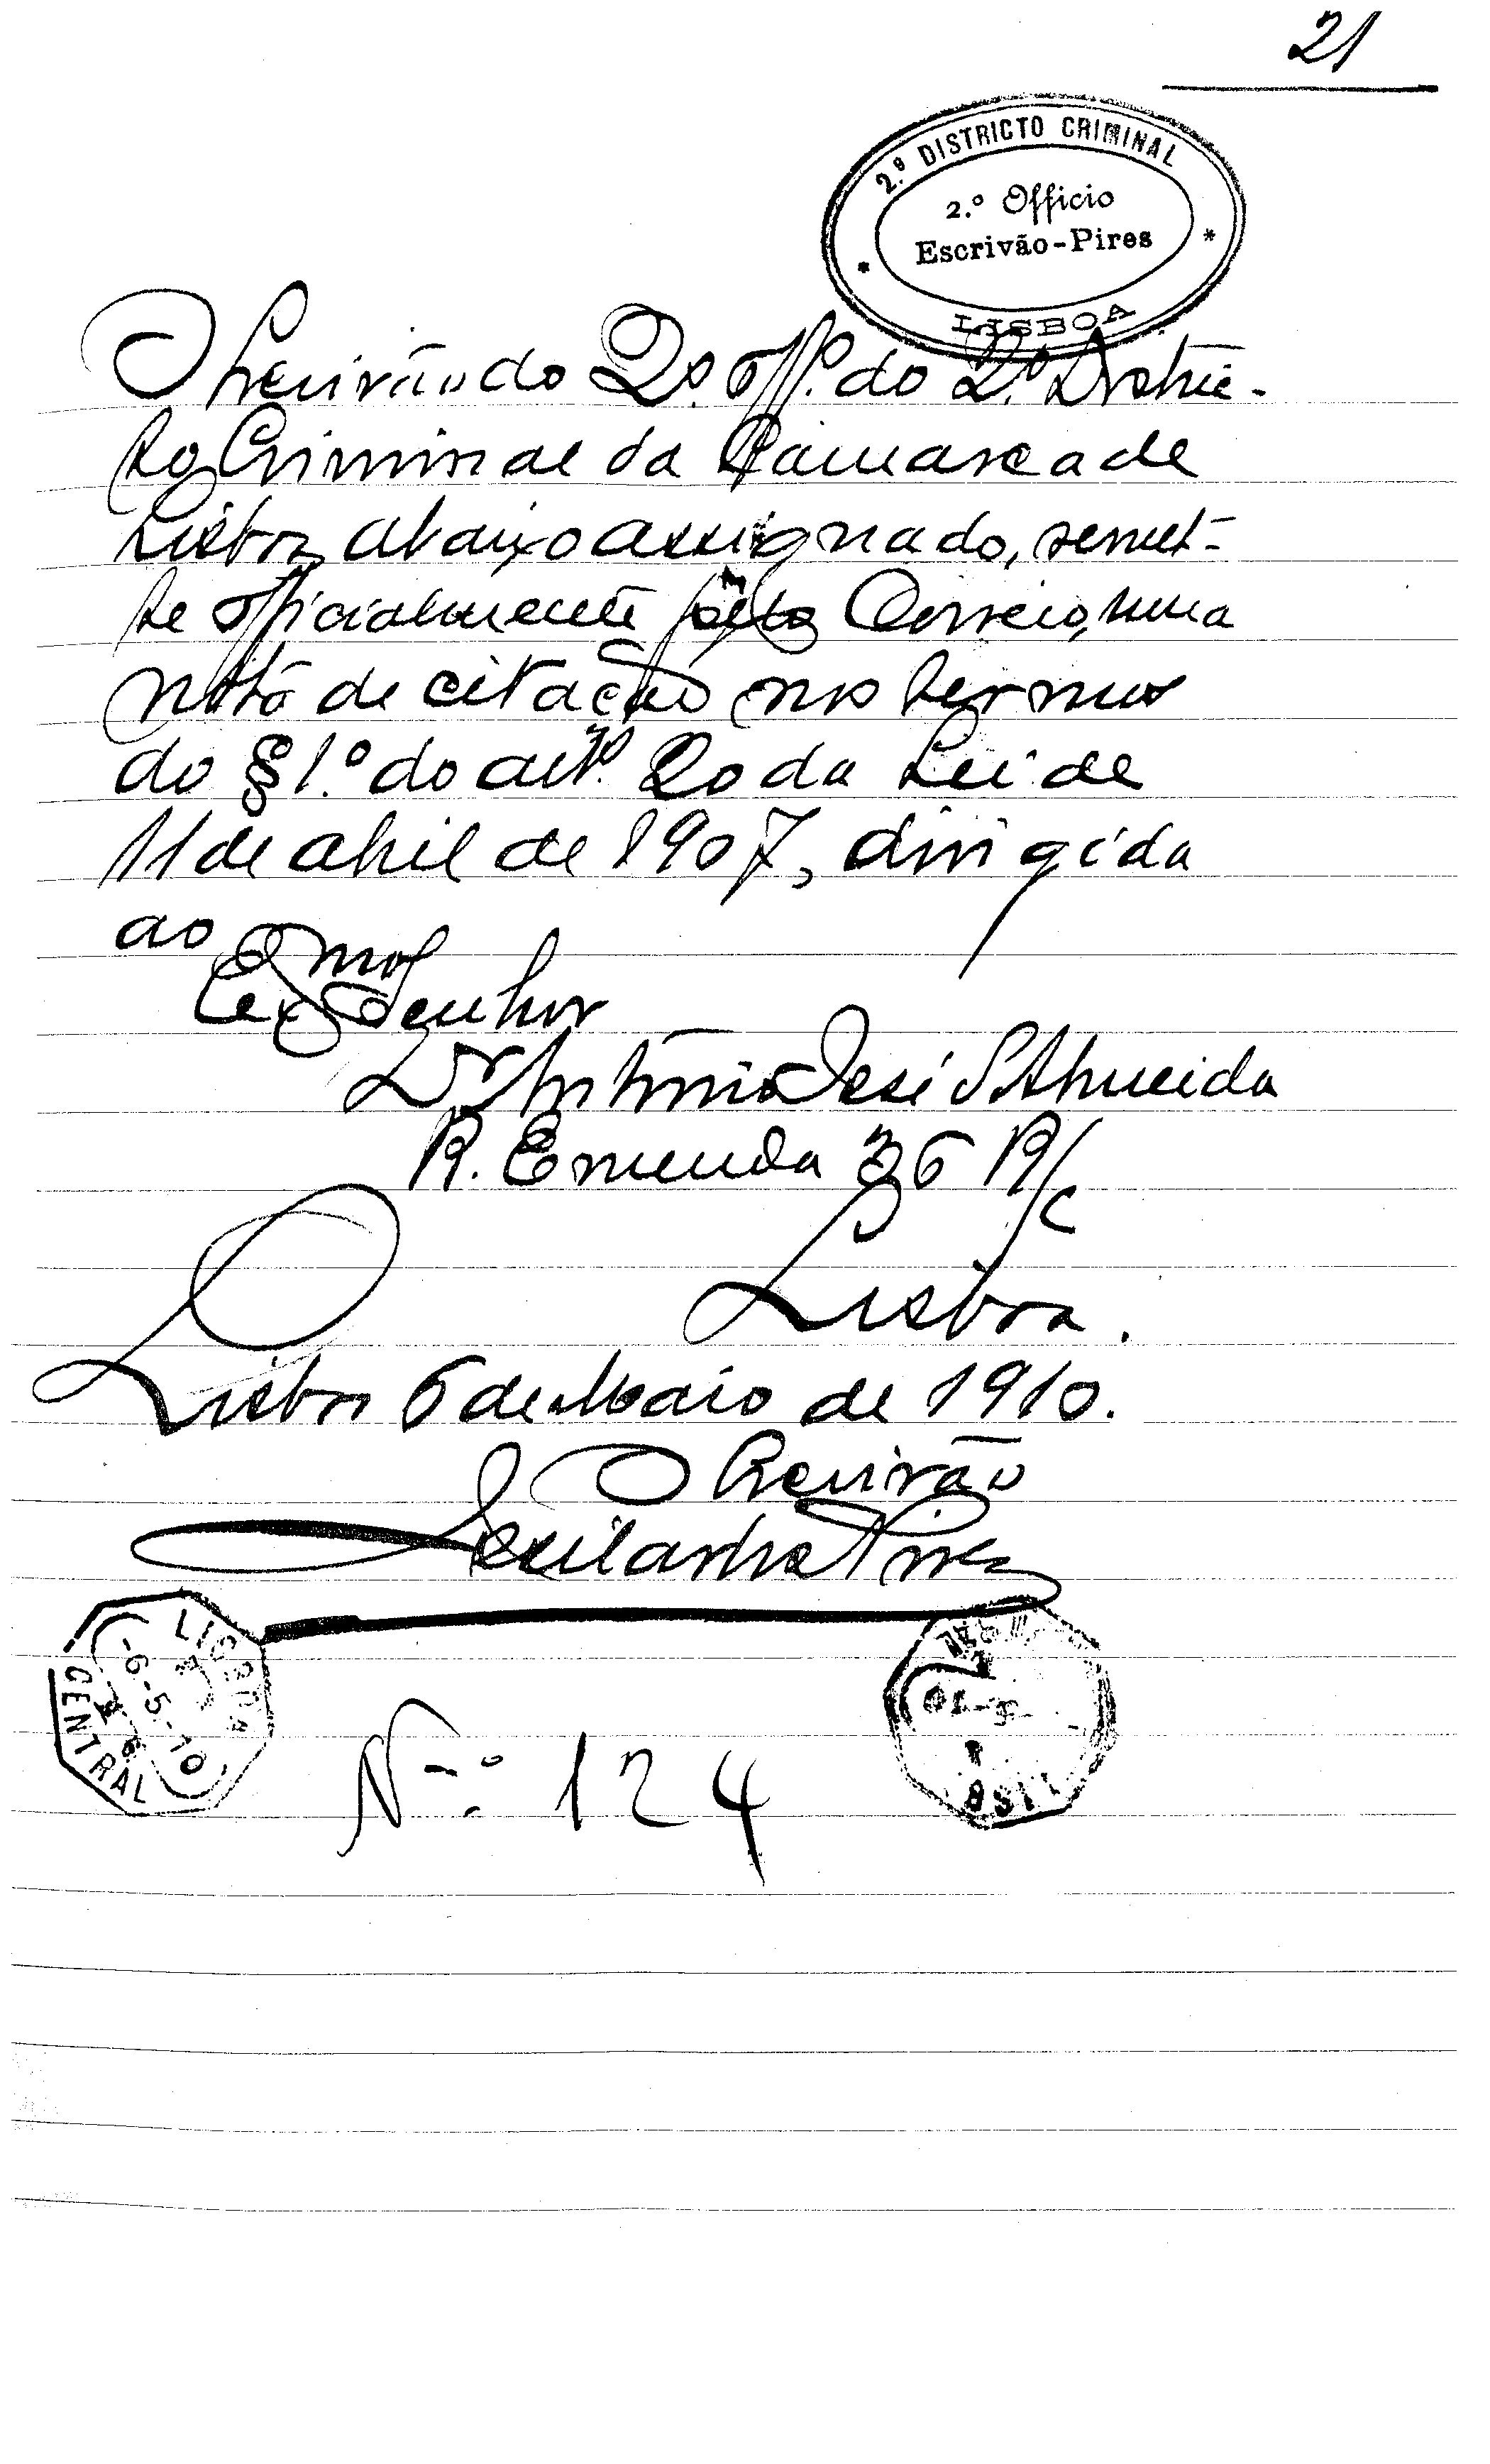 21
2.º DISTRICTO CRIMINAL
2.º Officio
Escrivão-Pires
LISBOA
O Escrivão do 2.º off.º do 2.º Distri-
cto Criminal da Comarca de
Lisboa, abaixo assignado, remet-
te officialmente pelo Correio, uma
nota de citação nos termos
do § 1.º do art.º 20 da Lei de
11 de abril de 1907, dirigida
ao
Exmo Senhor
Dr António José d'Almeida
R. Emenda 36 R/c
Lisboa.
Lisboa 6 de Maio de 1910.
O Escrivão
Pires
LISBOA
-6-5-10
CENTRAL
N.º 124